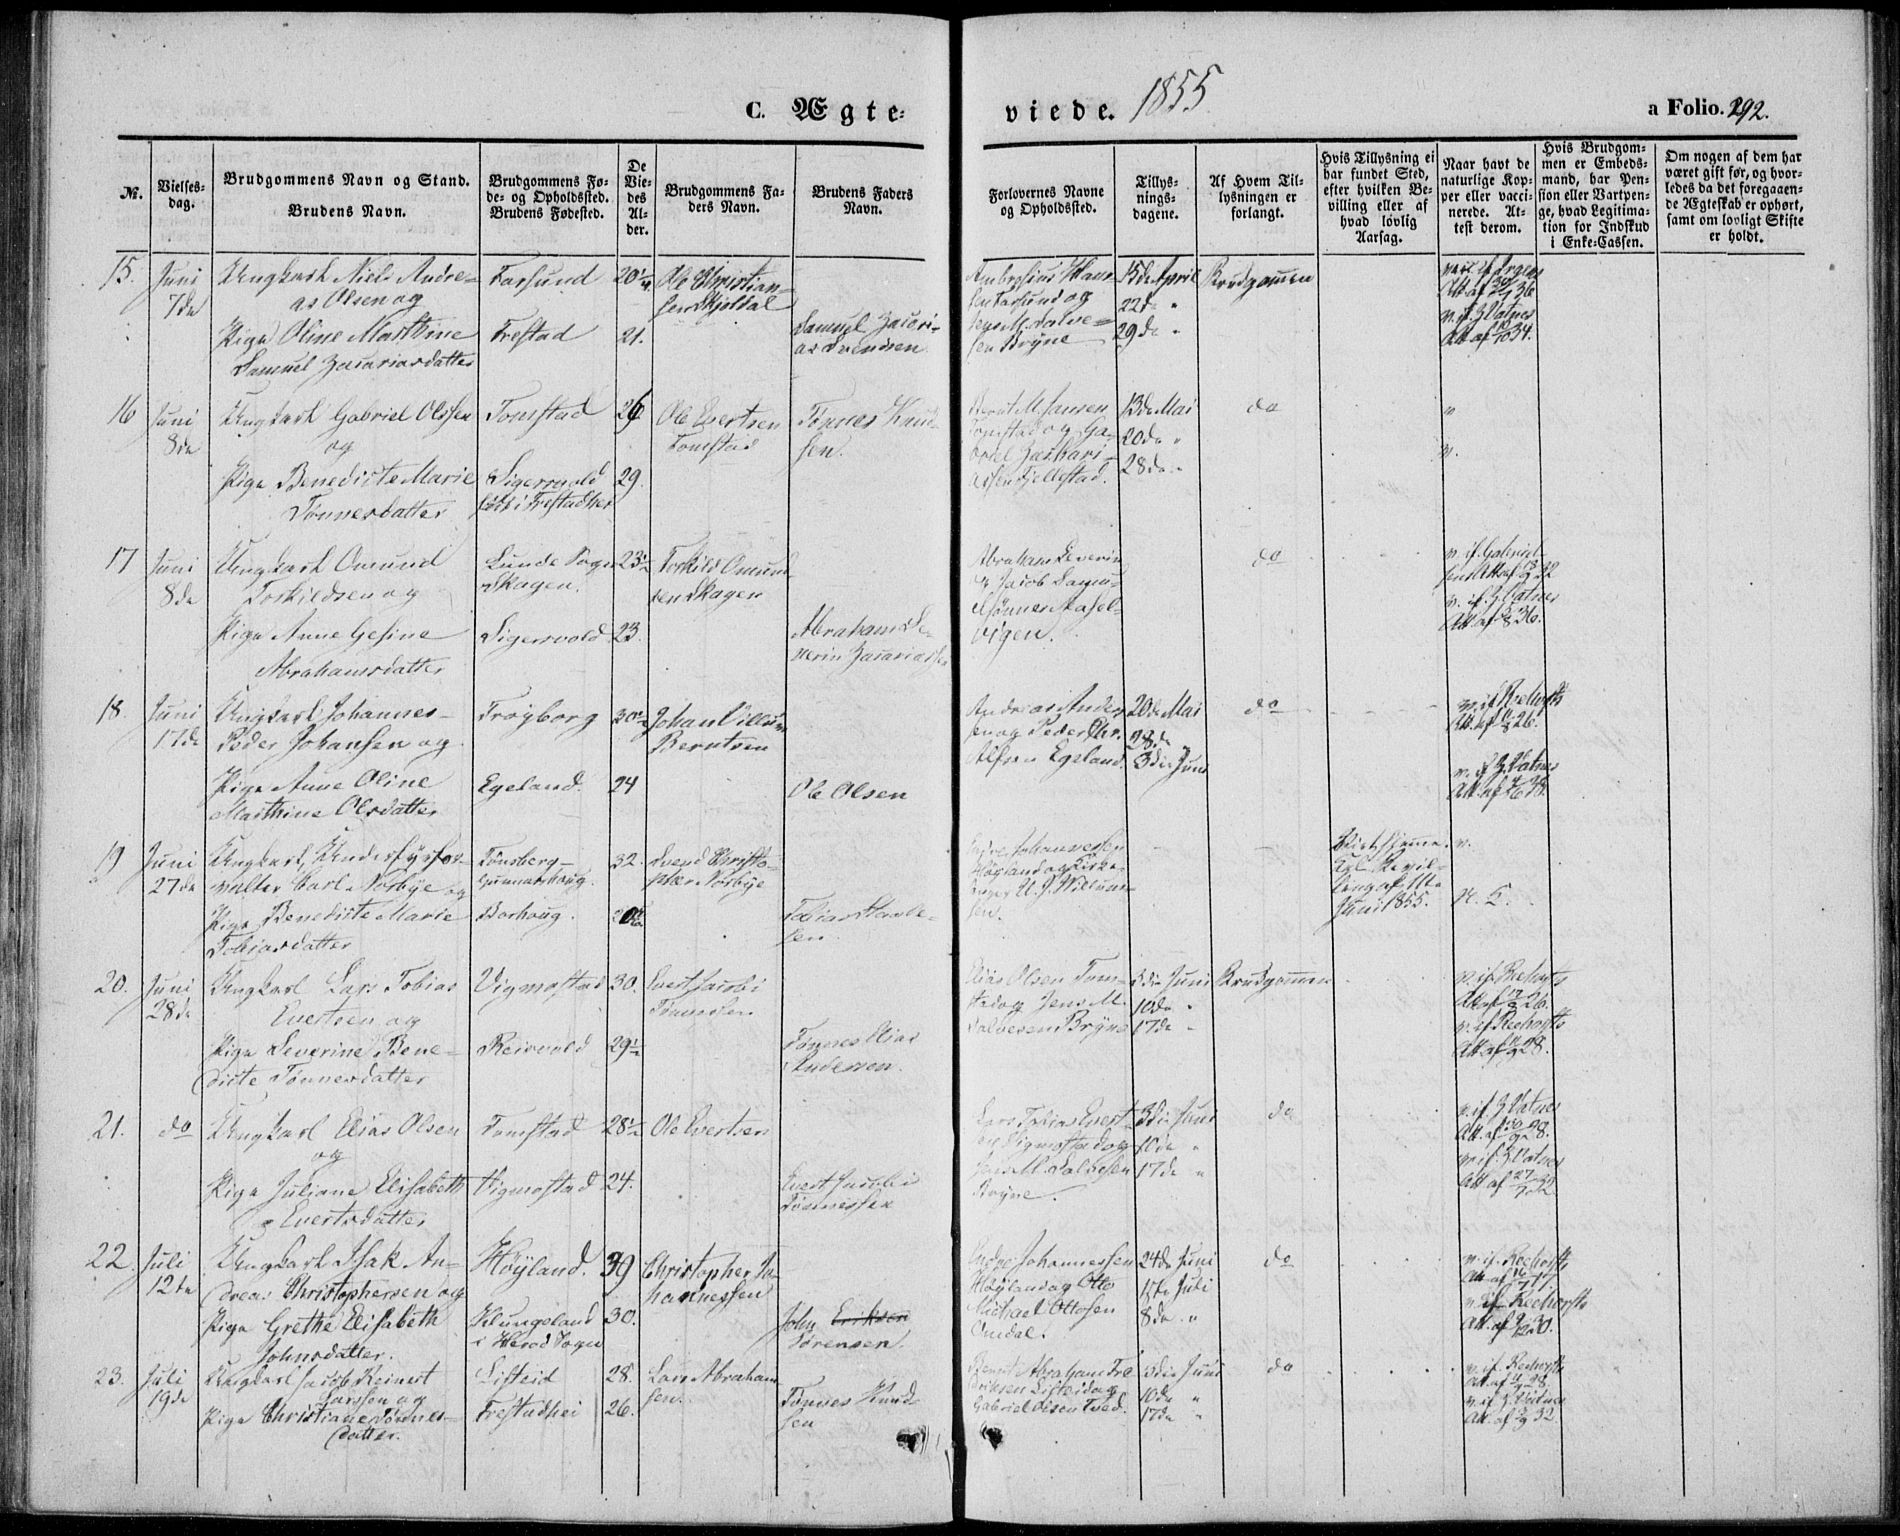 C. Ægte-
viede. 1855
a Folio. 292.
№.
Vielses-
dag.
Brudgommens Navn og Stand.
Brudens Navn.
Brudgommens Fø-
de- og Opholdssted.
Brudens Fødested.
De
Vie-
des
Al-
der.
Brudgommens Fa-
ders Navn.
Brudens Faders
Navn.
Forlovernes Navne
og Opholdssted.
Tillys-
nings-
dagene.
Af Hvem Til-
lysningen er
forlangt.
Hvis Tillysning ei
har fundet Sted,
efter hvilken Be-
villing eller af
hvad lovlig
Aarsag.
Naar havt de
naturlige Kop-
per eller vacci-
nerede. At-
test derom.
Hvis Brudgom-
men er Embeds-
mand, har Pen-
sion eller Vartpen-
ge, hvad Legitima-
tion for Indskud
i Enke-Cassen.
Om nogen af dem har
været gift før, og hvor-
ledes da det foregaaen-
de Ægteskab er ophørt,
samt om lovligt Skifte
er holdt.
15.
Juni
7de
Ungkarl Niels Andre-
as Olsen og
Pige Oline Marthine
Samuel Zacariasdatter
Farsund
Frestad
21.
Ole Christian-
sen
Samuel Zacari-
as Svendsen
Ambrosius
Farsund og
Jens M. Salve-
sen Bryne
15de April
22de "
29de "
Brudgommen
v. if. Vatnes
16
Juni
8de
Ungkarl Gabriel Olsen
og
Pige Benedicte Marie
Tønnesdatter
Tomstad
Sigersvold
født i Frestadhei
26
29.
Ole Evertsen
Tomstad
Tønnes Knud-
sen.
Tomstad og Ga-
briel Zachari-
assen Fjellestad.
13de Mai
20de "
28de "
do
v.
17
Juni
8de
Ungkarl Omund
Torkildsen og
Pige Anne Gesine
Abrahamsdatter
Lunde Sogn
Skagen.
Sigersvold
23½
23.
Torkild Omund-
sen Skagen
Abraham Se-
verin Zacariassen
Abraham Severin
& Jacob
vigen.
do
v. if. Gabriel-
sens Att. af
v. if. Z Vatnes
Att. af 36.
18.
Juni
17de
Ungkarl Johannes
Peder Johansen og
Pige Anne Oline
Marthine Olsdatter
Trøyborg
Egeland.
30½
24
Johan Villum
Berntsen
Ole Olsen
Andreas Ander-
sen og Peder Chr.
Olsen Egeland.
20de Mai
28de
3die Juni
do
Att. af 26.
v. if. Z Vatnes
19
Juni
27de
Ungkarl, Underfyrfor-
valter Carl Nørbye og
Pige Benedicte Marie
Tobiasdatter
Tønsberg
Gunnarshoug.
Borhoug.
32.
Svend Christo-
pher Nørbye
Tobias
sen
Endre Johannessen
Høyland og Kirke-
sanger
sen.
Kgl. Bevil-
ling af 11te
Juni 1855.
v.
20.
Juni
28de
Ungkarl Lars Tobias
Evertsen og
Pige Severine Bene-
dicte Tønnesdatter
Vigmostad
Reisvold
30.
29½
Evert Jacobi
Tønnessen
Tønnes Elias
Andersen.
Elias Olsen Tom-
stad og Jens M.
Salvesen Bryne
3die Juni
10de "
17de "
Brudgommen
Att. af 28.
21.
do
Ungkarl Elias Olsen
og
Pige Juliane Elisabeth
Evertsdatter
Tomstad
Vigmostad
28½
24.
Ole Evertsen
Evert Jacobi
Tønnessen
Lars Tobias Evert-
sen Vigmostad og
Jens M. Salvesen
Bryne.
3die Juni
10de "
17de "
do
v. if. Z Vatnes
v. if. Z Vatnes
22.
Juli
12te
Ungkarl Isak An-
dreas Christophersen og
Pige Grethe Elisabeth
Johnsdatter.
Høyland.
Klungeland
i Herod Sogn
39
30.
Christopher Jo-
hannessen
John Eriksen
Sørensen.
Endre Johannessen
Høyland og Otto
Michael Ottosen
Omdal.
24de Juni
1ste Juli
8de "
do
23.
Juli
19de
Ungkarl Jacob Reinert
Larssen og
Pige Christiane Tønnes-
datter.
Listeid
Frestadhei
28.
26.
Lars Abraham-
sen.
Tønnes Knud-
sen
Bernt Abraham Fre-
driksen Listeid og
Gabriel Olsen Tved.
3die Juni
10de "
17de "
do
Att. af 28.
v. if. Z Vatnes